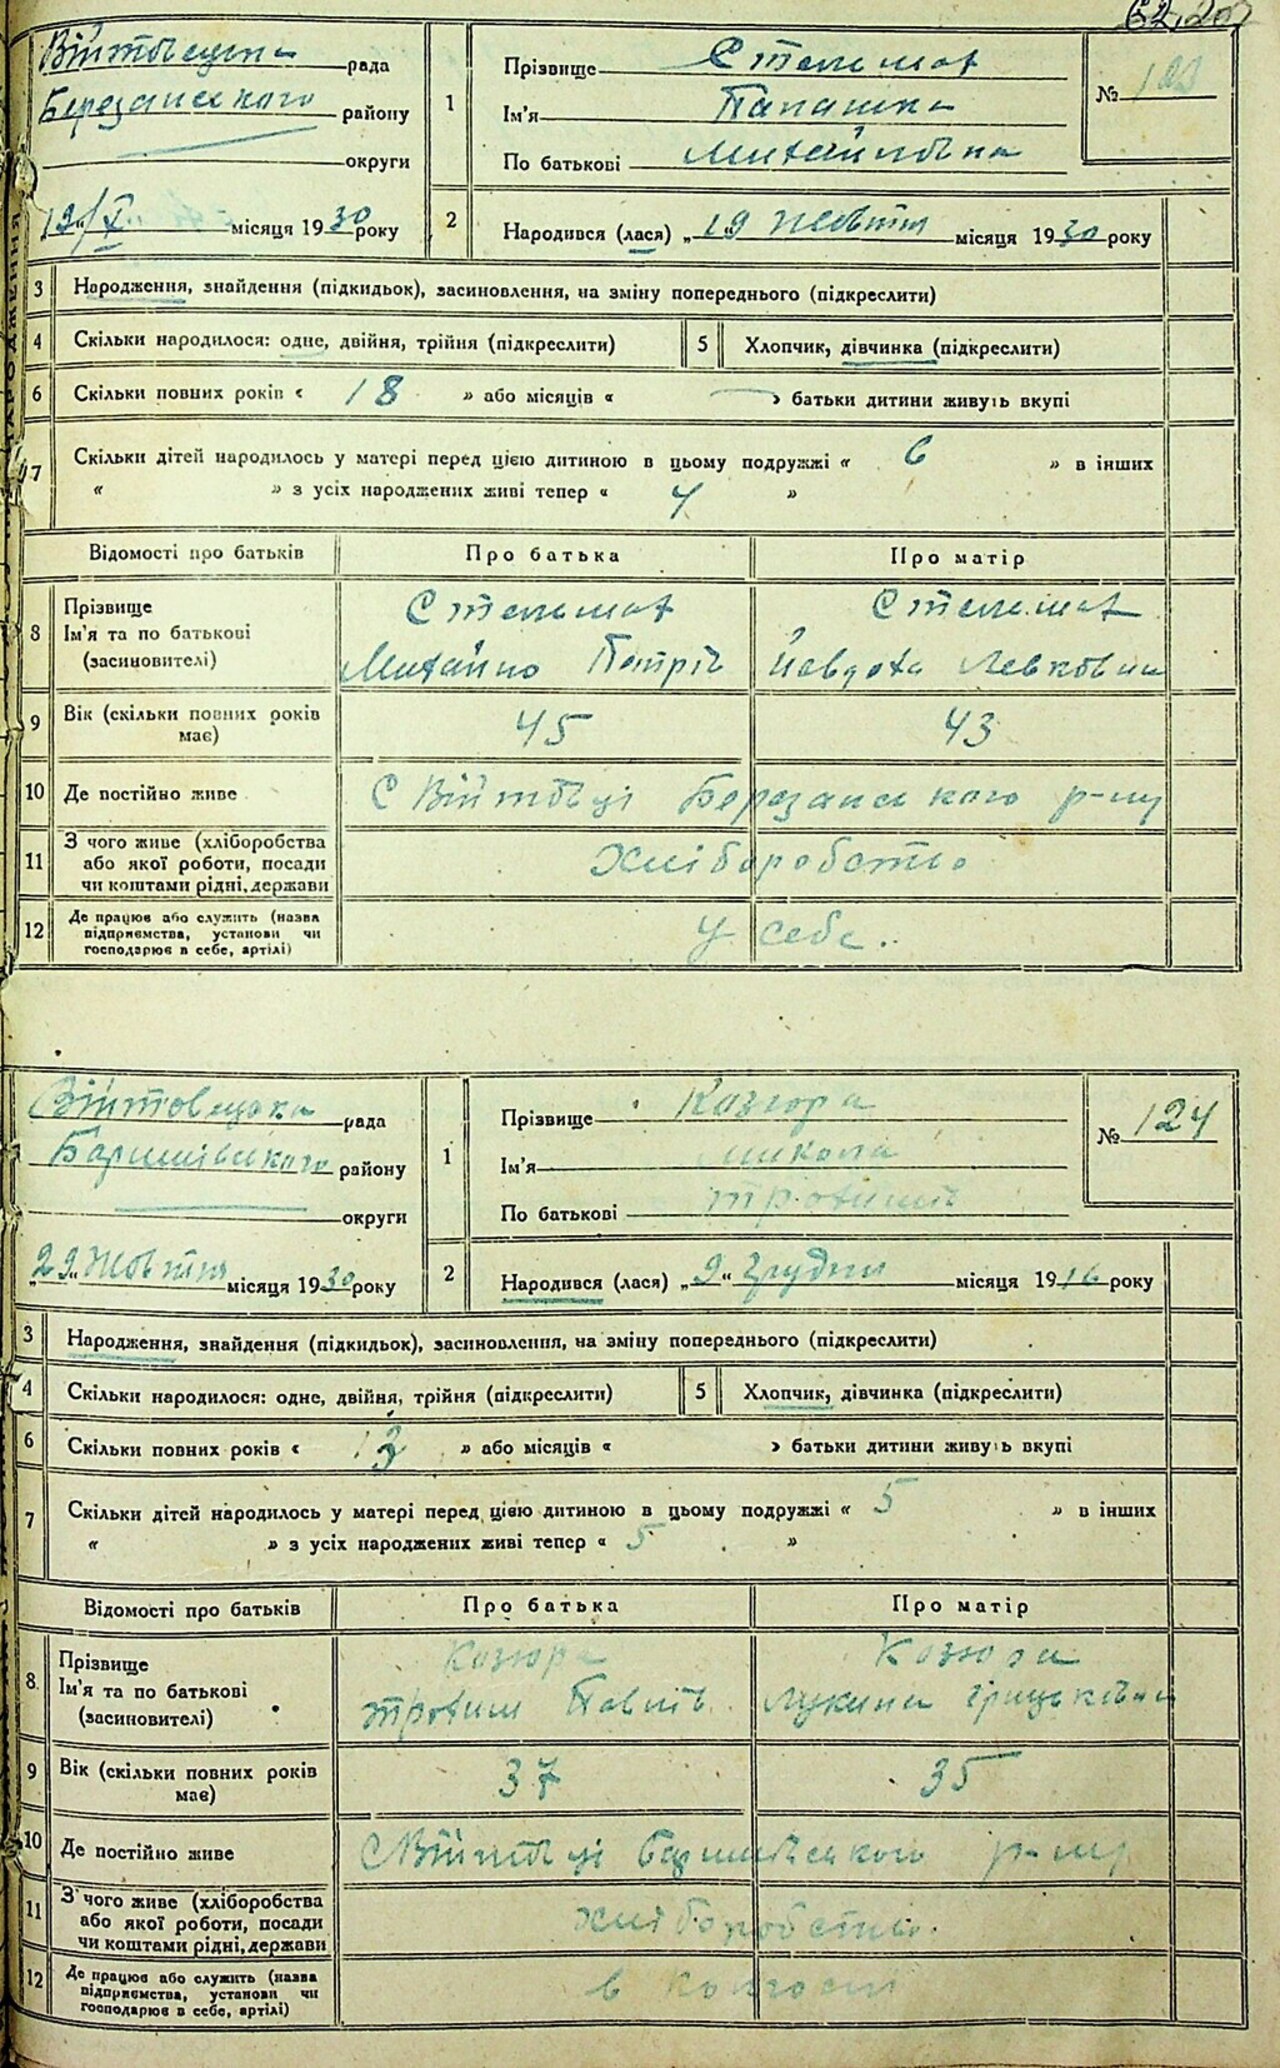 Війтовецька рада
Березанського району
округи
19/X місяця 1930 року
1
Прізвище Стельмах
Ім'я
По батькові Михайлівна
№
2
Народився (лася) „19" Жовтня місяця 1930 року
3 Народження, знайдення (підкидьок), засиновлення, на зміну попереднього (підкреслити)
4 Скільки народилося: одне, двійня, трійня (підкреслити) 5 Хлопчик, дівчинка (підкреслити)
6 Скільки повних років « 18 » або місяців « » батьки дитини живуть вкупі
7 Скільки дітей народилось у матері перед цією дитиною в цьому подружжі « 6 » в інших
« » з усіх народжених живі тепер « 4 »
Відомості про батьків Про батька Про матір
8 Прізвище Стельмах Стельмах
Ім'я та по батькові
(засиновителі) Михайло Петрів Йавдоха Левківна
9 Вік (скільки повних років має) 45 43
10 Де постійно живе С Війтовці Березанського р-ну
11 З чого живе (хліборобства
або якої роботи, посади
чи коштами рідні, держави Хліборобство
12 Де працює або служить (назва
підприємства, установи чи
господарює в себе, артілі) У себе.
Війтовецька рада
Баришівського району
округи
„29" Жовтня місяця 1930 року
1
Прізвище Козюра
Ім'я Микола
По батькові Трохимів
№ 124
2
Народився (лася) „9" Грудня місяця 1916 року
3 Народження, знайдення (підкидьок), засиновлення, на зміну попереднього (підкреслити)
4 Скільки народилося: одне, двійня, трійня (підкреслити) 5 Хлопчик, дівчинка (підкреслити)
6 Скільки повних років « » або місяців « » батьки дитини живуть вкупі
7 Скільки дітей народилось у матері перед цією дитиною в цьому подружжі « 5 » в інших
« » з усіх народжених живі тепер « 5 »
Відомості про батьків Про батька Про матір
8. Прізвище Козюра Козюра
Ім'я та по батькові
(засиновителі) Трохим Павлів Лукина Грицьківна
9 Вік (скільки повних років має) 37 35
10 Де постійно живе С Війтовці Баришівського р-ну
11 З чого живе (хліборобства
або якої роботи, посади
чи коштами рідні, держави Хліборобство.
12 Де працює або служить (назва
підприємства, установи чи
господарює в себе, артілі) в колгоспі